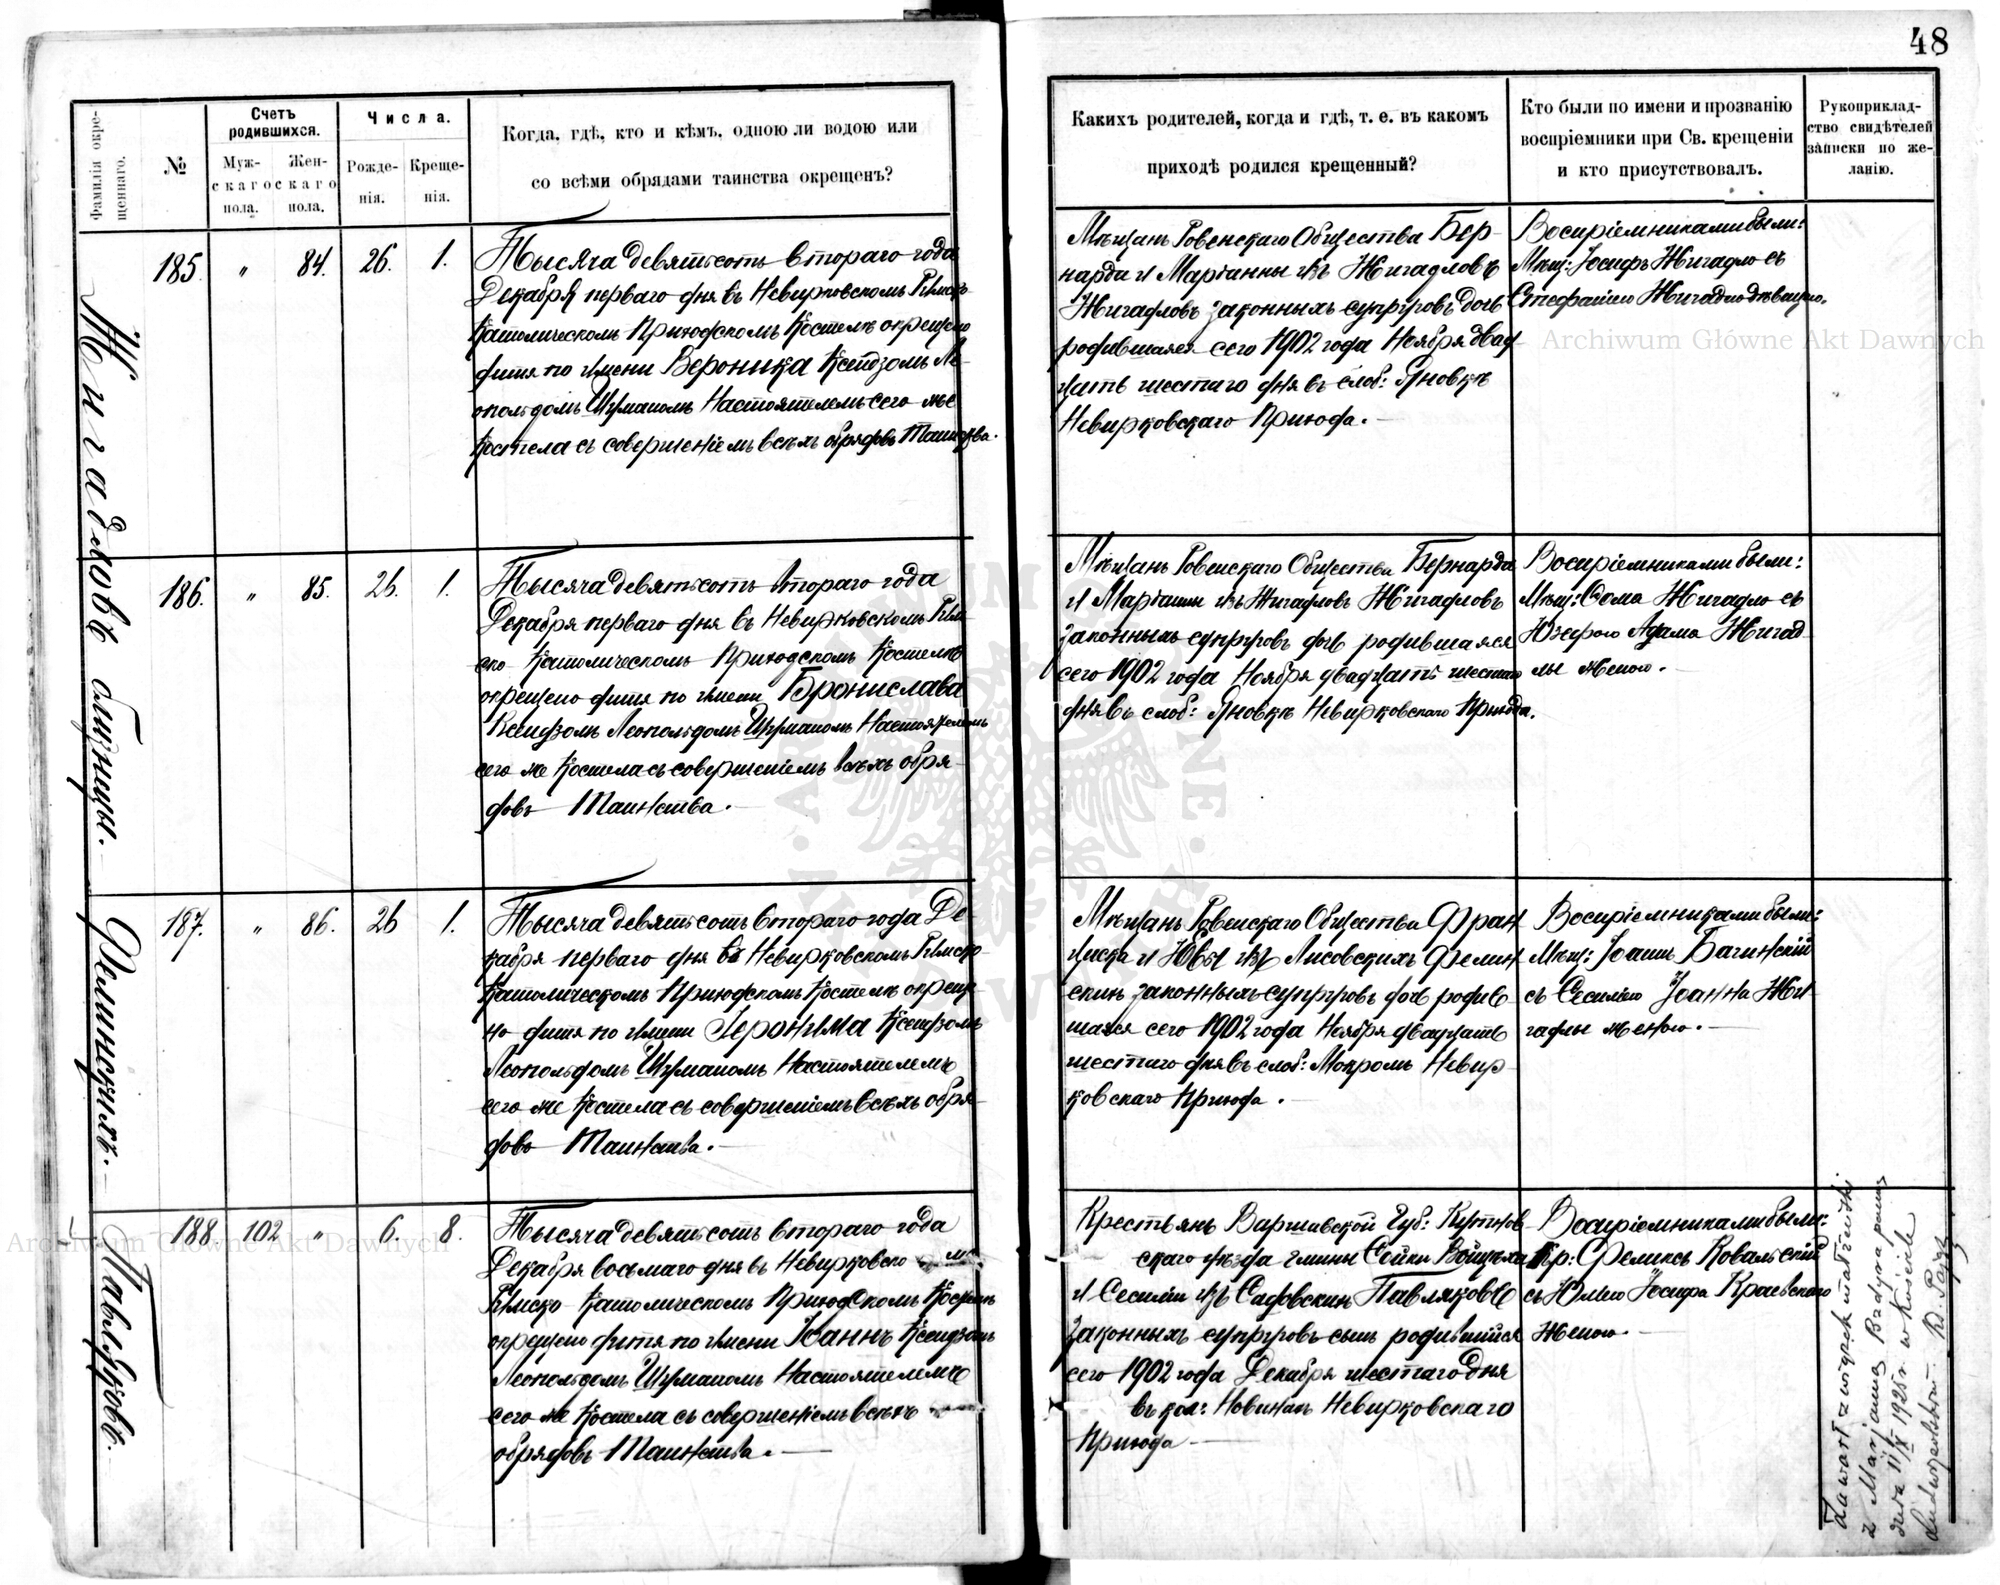 48
Фамилія окрещеннаго.
№
Счетъ родившихся.
Мужскаго пола.
Женскаго пола.
Числа.
Рожденія.
Крещенія.
Когда, гдѣ, кто и кѣмъ, одною ли водою или
со всѣми обрядами таинства окрещенъ?
Какихъ родителей, когда и гдѣ, т. е. въ какомъ
приходѣ родился крещенный?
Кто были по имени и прозванію
воспріемники при Св. крещеніи
и кто присутствовалъ.
Рукоприклад-
ство свидѣтелей
записки по же-
ланію.
Жигадловъ близницы.
185.
"
84.
26.
1.
Тысяча девятьсотъ втораго года
Декабря перваго дня въ Невирковскомъ Римско
Католическомъ Приходскомъ Костелѣ окрещено
дитя по имени Вероника Ксендзомъ Ле-
опольдомъ Шуманомъ Настоятелемъ сего же
Костела съ совершеніемъ всѣхъ обрядовъ Таинства.
Мѣщанъ Ровенскаго Общества Бер-
нарда и Маріанны изъ Жигадловъ
Жигадловъ законныхъ супруговъ дочь
родившаяся сего 1902 года Ноября двад
цать шестаго дня въ слоб: Яновкѣ
Невирковскаго Прихода.
Воспріемниками были:
Мѣщ: Іосифъ Жигадло съ
Стефаніею Жигадло дѣвицею.
186.
"
85.
26.
1.
Тысяча девятьсотъ втораго года
Декабря перваго дня въ Невирковскомъ Рим-
ско Католическомъ Приходскомъ Костелѣ
окрещено дитя по имени Бронислава
Ксендзомъ Леопольдомъ Шуманомъ Настоятелемъ
сего же Костела съ совершеніемъ всѣхъ обря-
довъ Таинства.
Мѣщанъ Ровенскаго Общества Бернарда
и Маріанны изъ Жигадловъ Жигадловъ
законныхъ супруговъ дочь родившаяся
сего 1902 года Ноября двадцать шестаго
дня въ слоб: Яновкѣ Невирковскаго Прихода.
Воспріемниками были:
Мѣщ: Сома Жигадло съ
Юзефою Адама Жигад-
лы женою.
Фелинскихъ.
187.
"
86.
26
1.
Тысяча девятьсотъ втораго года Де-
кабря перваго дня въ Невирковскомъ Римско-
Католическомъ Приходскомъ Костелѣ окреще-
но дитя по имени Іеронима Ксендзомъ
Леопольдомъ Шуманомъ Настоятелемъ
сего же Костела съ совершеніемъ всѣхъ обря-
довъ Таинства.
Мѣщанъ Ровенскаго Общества Фран
циска и Евы изъ Лисовскихъ Фелин
скихъ законныхъ супруговъ дочь родив
шаяся сего 1902 года Ноября двадцать
шестаго дня въ слоб: Мокромъ Невир-
ковскаго Прихода.
Воспріемниками были:
Мѣщ: Іоаннъ Багинскій
съ Сесиліею Іоанна Жи-
гадлы женою.
Павляковъ.
188
102
"
6.
8.
Тысяча девятьсотъ втораго года
Декабря восьмаго дня въ Невирковскомъ
Римско Католическомъ Приходскомъ Костелѣ
окрещено дитя по имени Іоаннъ Ксендзомъ
Леопольдомъ Шуманомъ Настоятелемъ
сего же Костела съ совершеніемъ всѣхъ
обрядовъ Таинства.
Крестьянъ Варшавской Губ: Кутнов
скаго уѣзда гмины Сойки Войцѣха
и Сесиліи изъ Садовскихъ Павляковъ
законныхъ супруговъ сынъ родившійся
сего 1902 года Декабря шестаго дня
въ кол: Новинахъ Невирковскаго
Прихода
Воспріемниками были:
Кр: Феликсъ Ковальскій
съ Юліею Іосифа Краевскаго
женою.
Zawarł związek małżeński
z Marjanną
dnia 11/X 1925 r. w Kościele
Archiwum Główne Akt Dawnych
Archiwum Główne Akt Dawnych